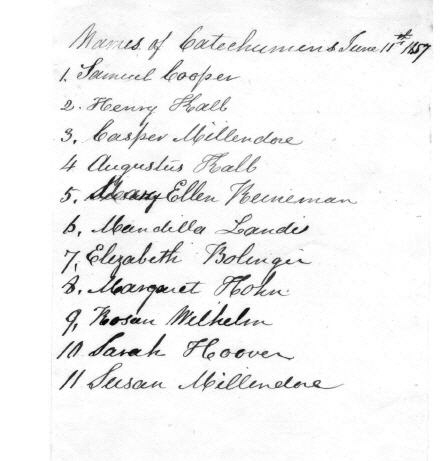 Names of Catechumens June 11th 1857
1. Samuel Cooper
2. Henry Kalb
3, Casper Millendore
4 Augustus Kalb
5. Mary Ellen Reineman
6, Mandilla Landis
7, Elizabeth Bolinger
8. Margaret Hohn
9, Rosan Wilhelm
10 Sarah Hoover
11 Susan Millendore